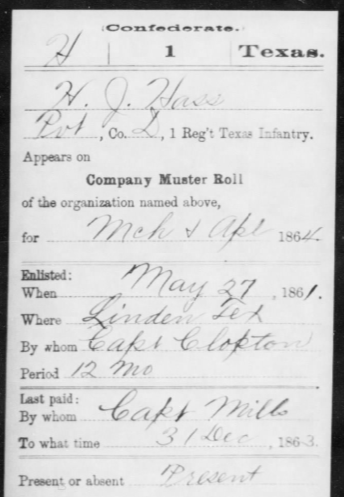 (Confederate.)
H 1 Texas.
H. J. Hass
Pvt, Co. D, 1 Reg't Texas Infantry.
Appears on
Company Muster Roll
of the organization named above,
for Mch & Apl 1864.
Enlisted:
When May 27, 1861.
Where Linden Tex
By whom Capt Clopton
Period 12 mo
Last paid:
By whom Capt Mills
To what time 31 Dec, 1863.
Present or absent Present